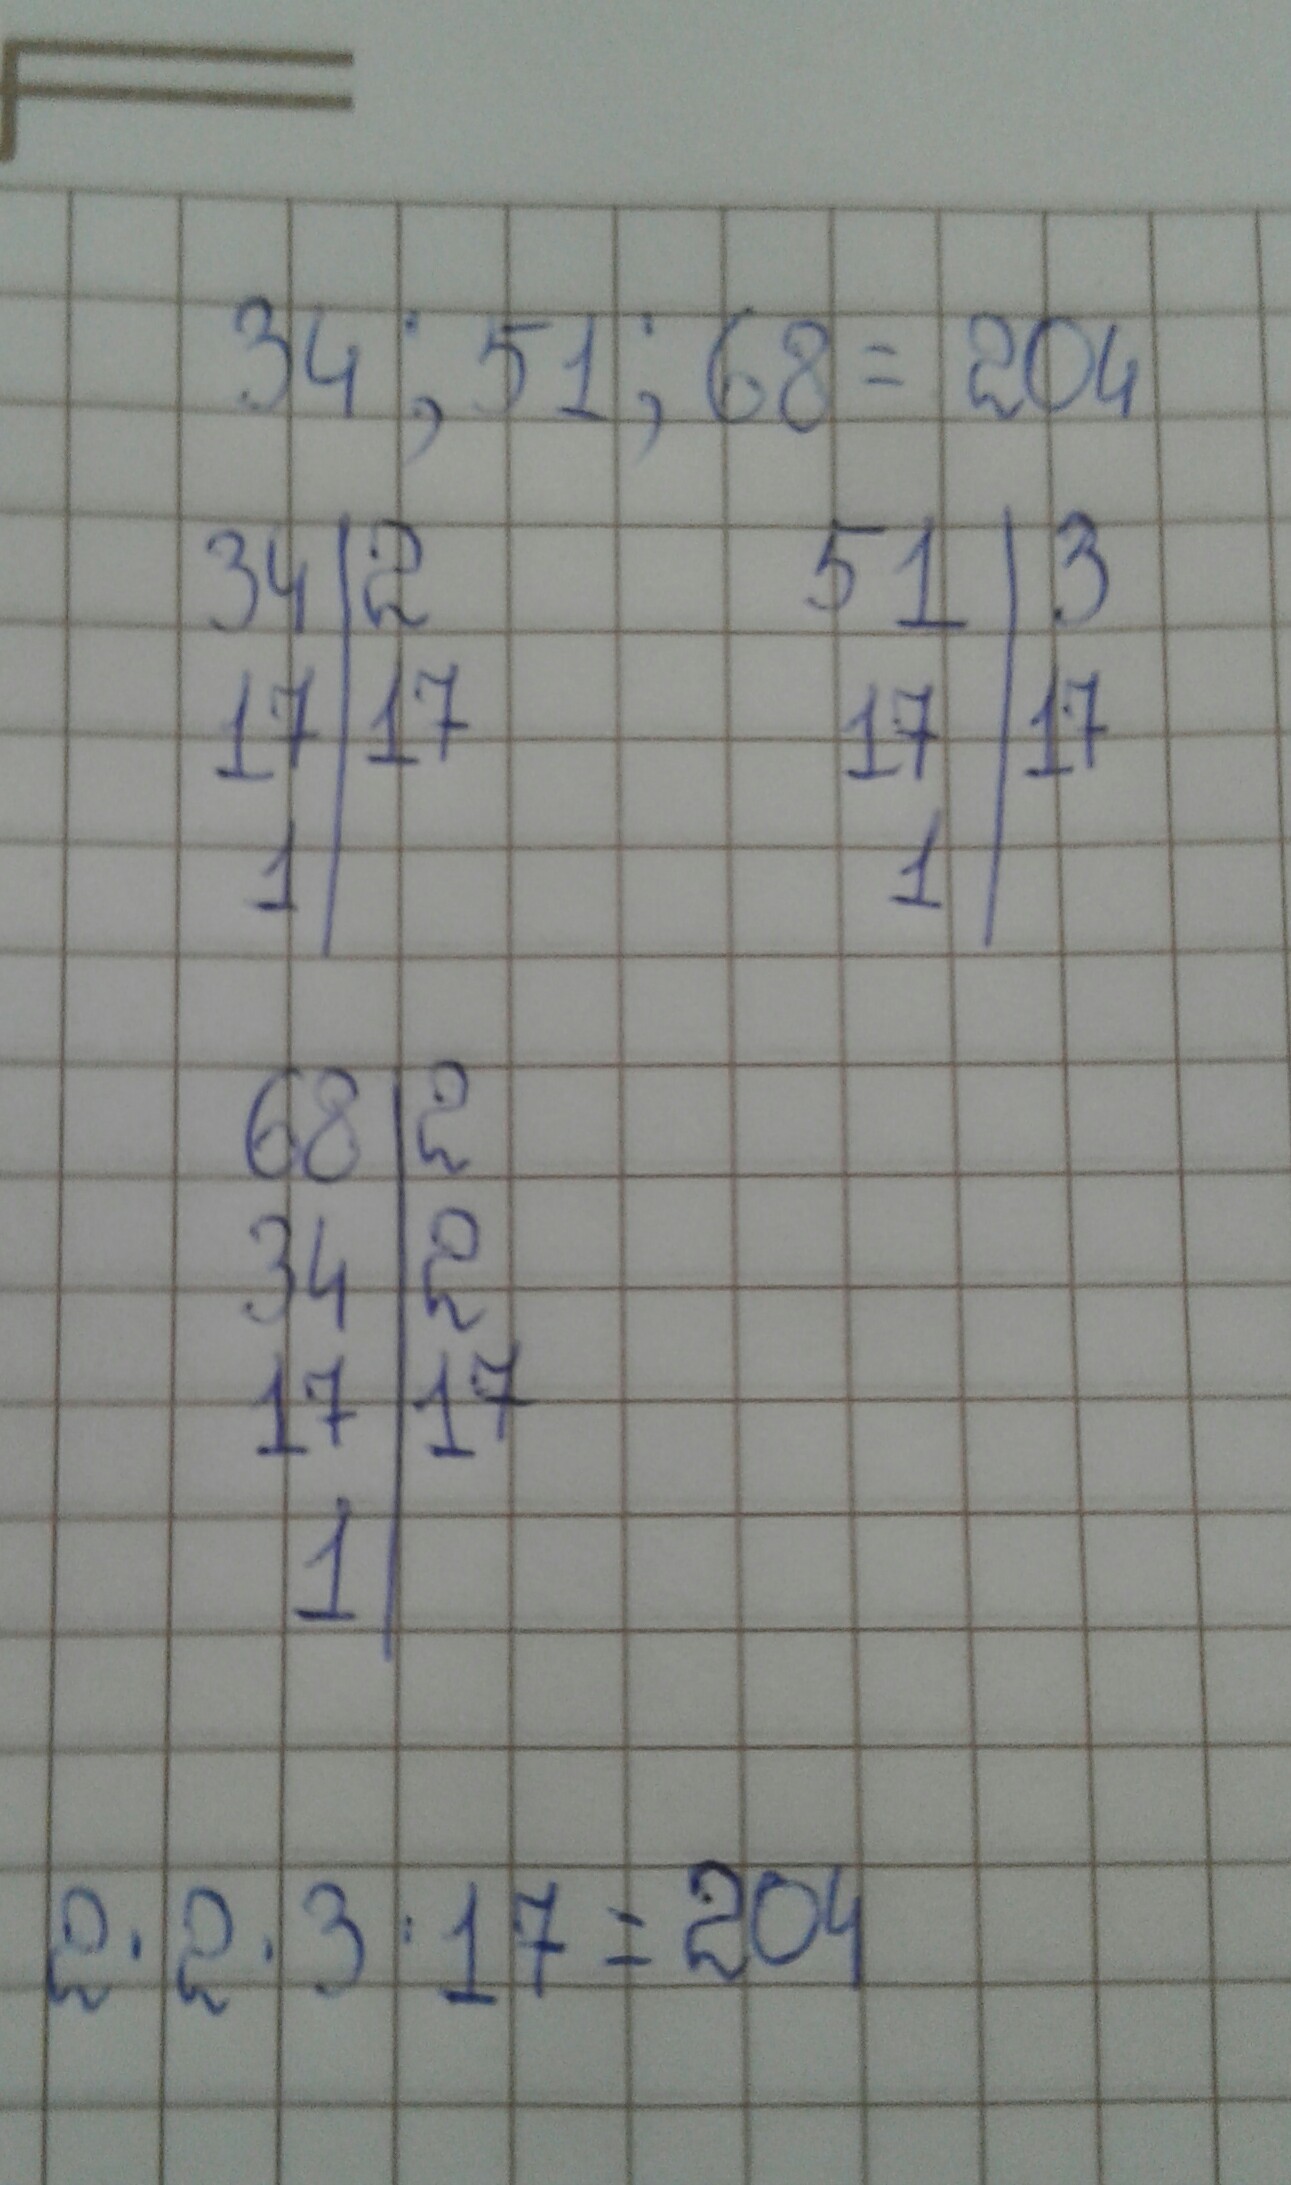 34; 51; 68 = 204
34 | 2
17 | 17
1 |
51 | 3
17 | 17
1 |
68 | 2
34 | 2
17 | 17
1 |
2 · 2 · 3 · 17 = 204